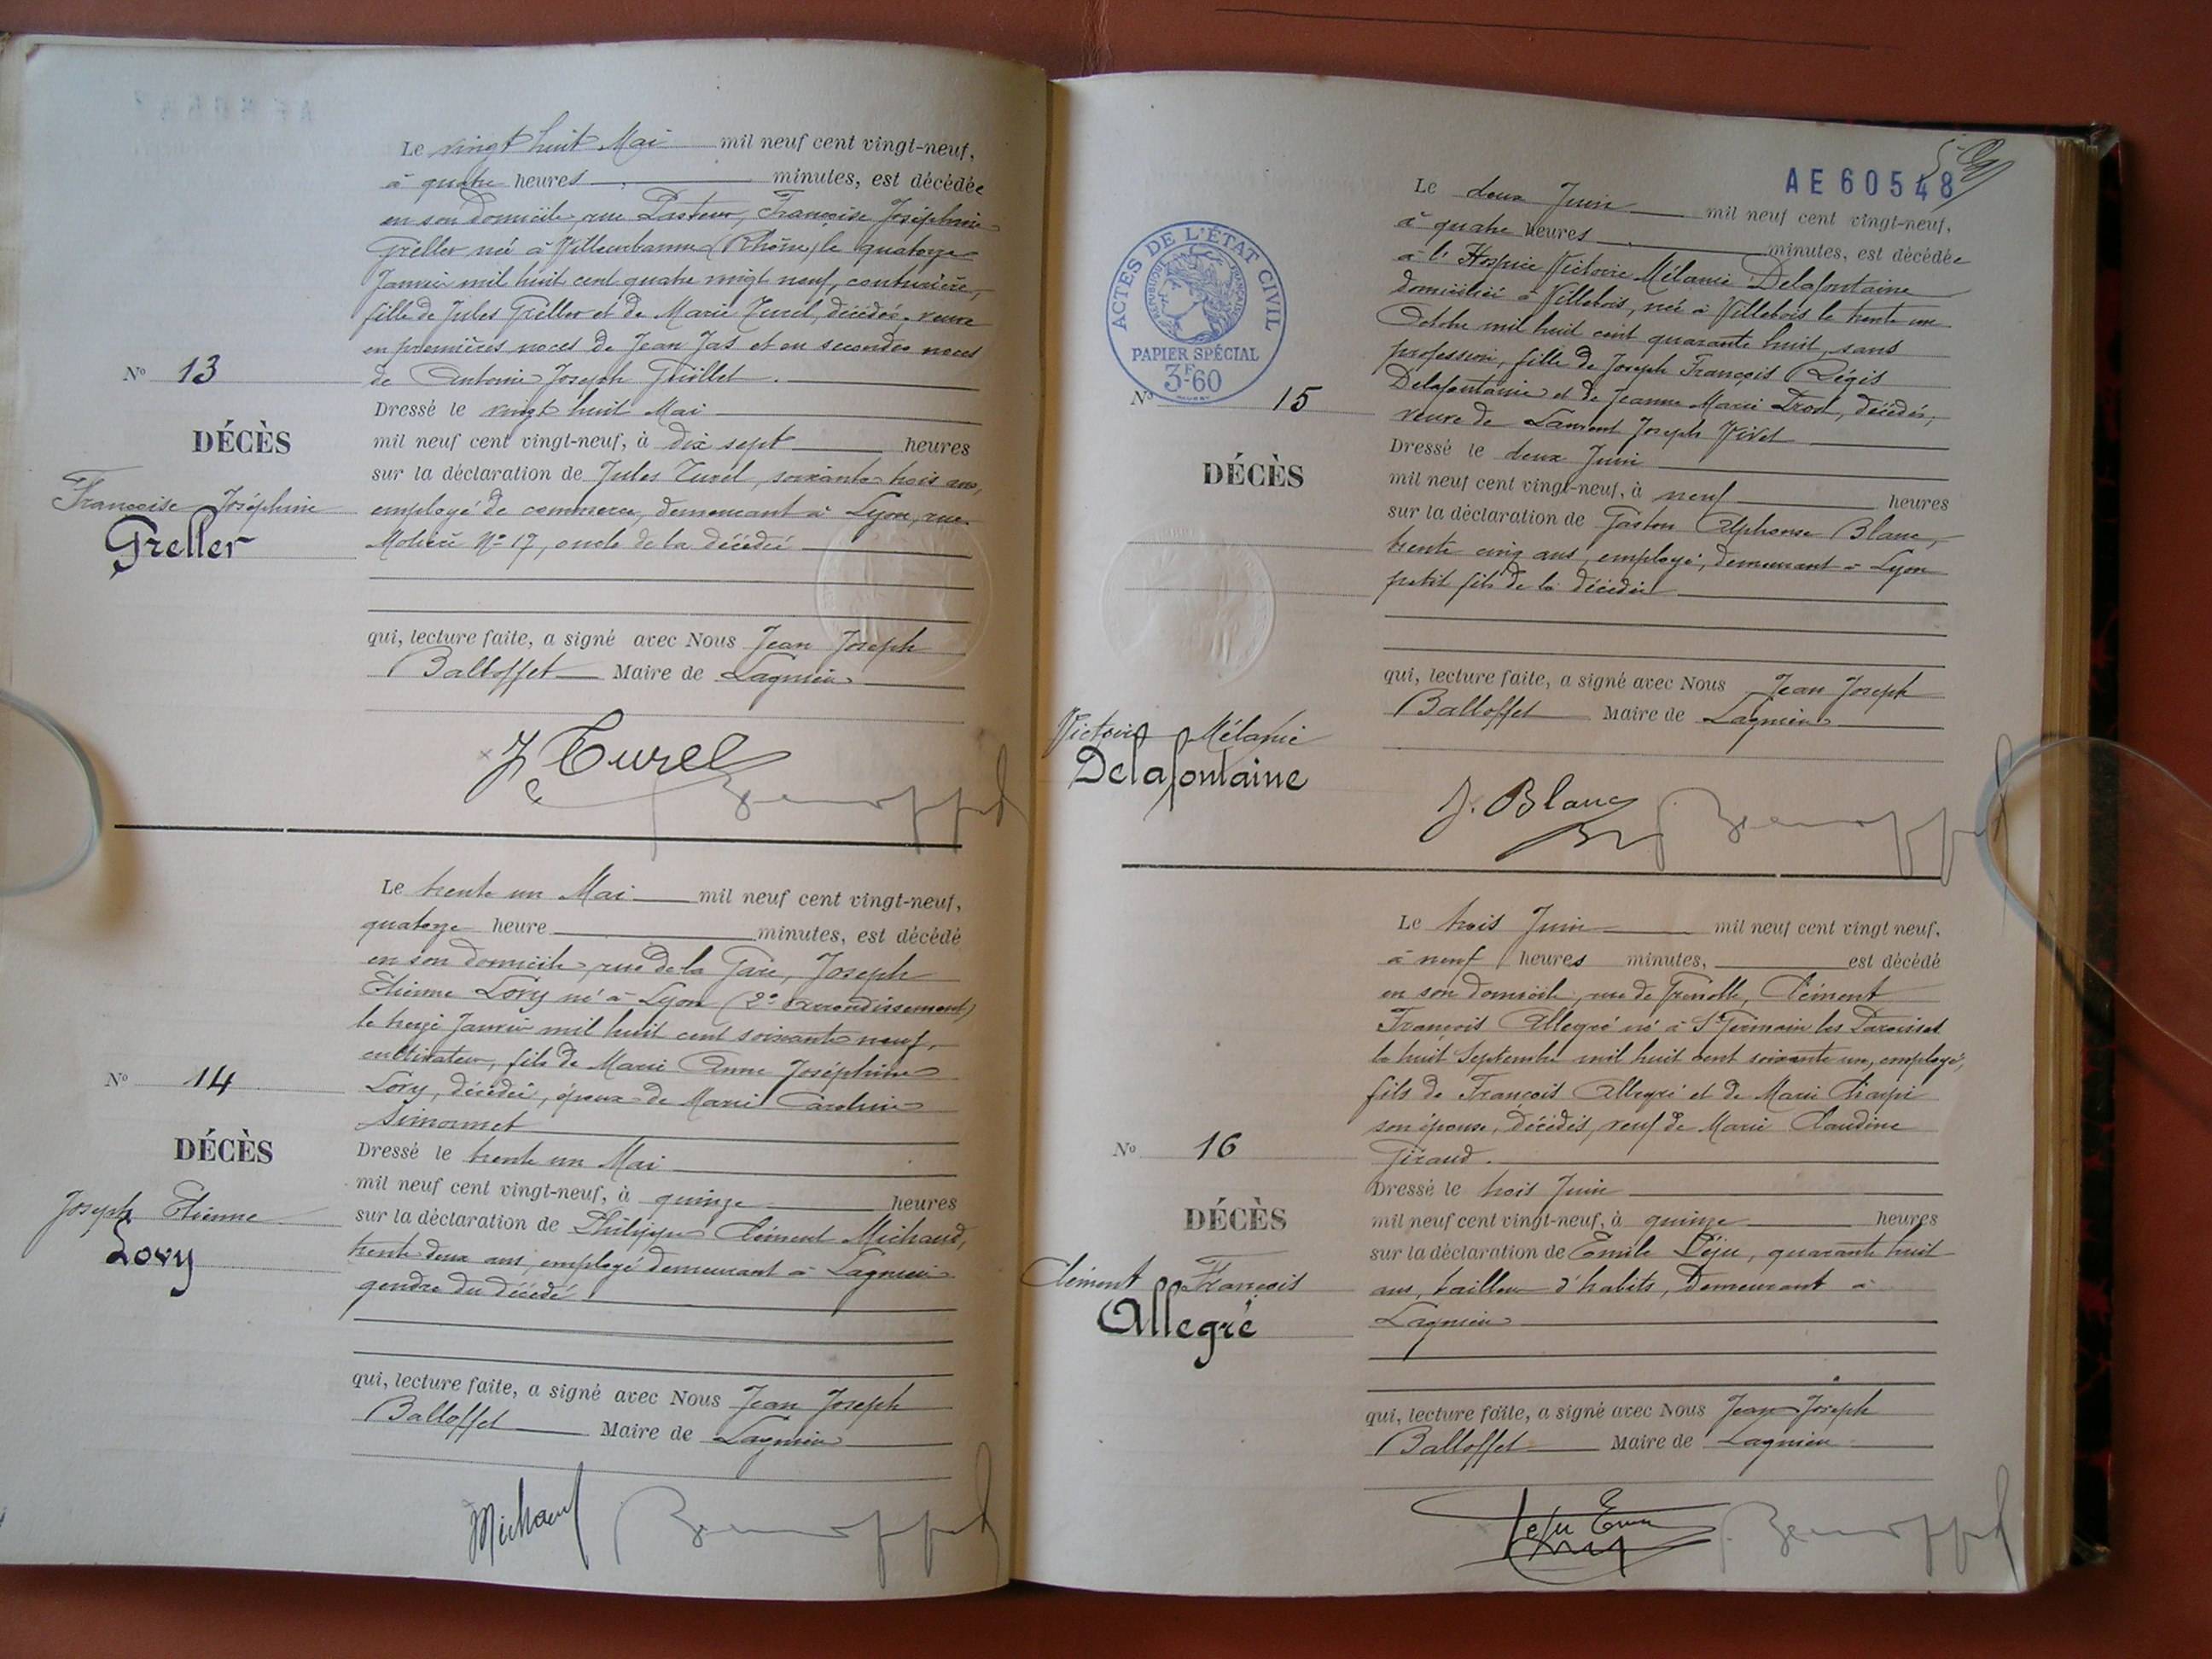 Le vingt huit Mai mil neuf cent vingt-neuf,
à quatre heures minutes, est décédée
en son domicile, rue Pasteur, Françoise Joséphine
Greller née à Villeurbanne (Rhône) le quatorze
Janvier mil huit cent quatre vingt neuf, couturière,
fille de Jules Greller et de Marie Turel, décédés, veuve
en premières noces de Jean Jas et en secondes noces
de Antoine Joseph Griollet.
Dressé le vingt huit Mai
mil neuf cent vingt-neuf, à dix sept heures
sur la déclaration de Jules Turel, soixante trois ans,
employé de commerce, demeurant à Lyon, rue
Molière N° 17, oncle de la décédée
qui, lecture faite, a signé avec Nous Jean Joseph
Balloffet Maire de Lagnieu
N° 13
DÉCÈS
Françoise Joséphine
Greller
J. Turel
Le trente un Mai mil neuf cent vingt-neuf,
quatorze heure minutes, est décédé
en son domicile, rue de la Gare, Joseph
Etienne Lovy né à Lyon (2e arrondissement)
le treize Janvier mil huit cent soixante neuf,
cultivateur, fils de Marie Anne Joséphine
Lovy, décédée, époux de Marie Caroline
Simonnet
Dressé le trente un Mai
mil neuf cent vingt-neuf, à quinze heures
sur la déclaration de Philippe Clément Michaud,
trente deux ans, employé demeurant à Lagnieu
gendre du décédé
qui, lecture faite, a signé avec Nous Jean Joseph
Balloffet Maire de Lagnieu
N° 14
DÉCÈS
Joseph Etienne
Lovy
Michaud
AE 60548
ACTES DE L'ÉTAT CIVIL
RÉPUBLIQUE FRANÇAISE
PAPIER SPÉCIAL
3F60
Le deux Juin mil neuf cent vingt-neuf,
à quatre heures minutes, est décédée
à l'Hospice Victoire Mélanie Delafontaine
domiciliée à Villebois, née à Villebois le trente un
Octobre mil huit cent quarante huit, sans
profession, fille de Joseph François Régis
Delafontaine et de Jeanne Marie Trost, décédés,
veuve de Laurent Joseph Vivet
Dressé le deux Juin
mil neuf cent vingt-neuf, à neuf heures
sur la déclaration de Gaston Alphonse Blanc,
trente cinq ans, employé, demeurant à Lyon
petit fils de la décédée
qui, lecture faite, a signé avec Nous Jean Joseph
Balloffet Maire de Lagnieu
N° 15
DÉCÈS
Victoire Mélanie
Delafontaine
Blanc
Le trois Juin mil neuf cent vingt neuf,
à neuf heures minutes, est décédé
en son domicile, rue de Grenoble, Clément
François Allegré né à St Germain les Paroisses
le huit Septembre mil huit cent soixante un, employé,
fils de François Allegré et de Marie Charpi
son épouse, décédés, veuf de Marie Claudine
Giraud.
Dressé le trois Juin
mil neuf cent vingt-neuf, à quinze heures
sur la déclaration de Emile Péju, quarante huit
ans, tailleur d'habits, demeurant à
Lagnieu
qui, lecture faite, a signé avec Nous Jean Joseph
Balloffet Maire de Lagnieu
N° 16
DÉCÈS
Clément François
Allegré